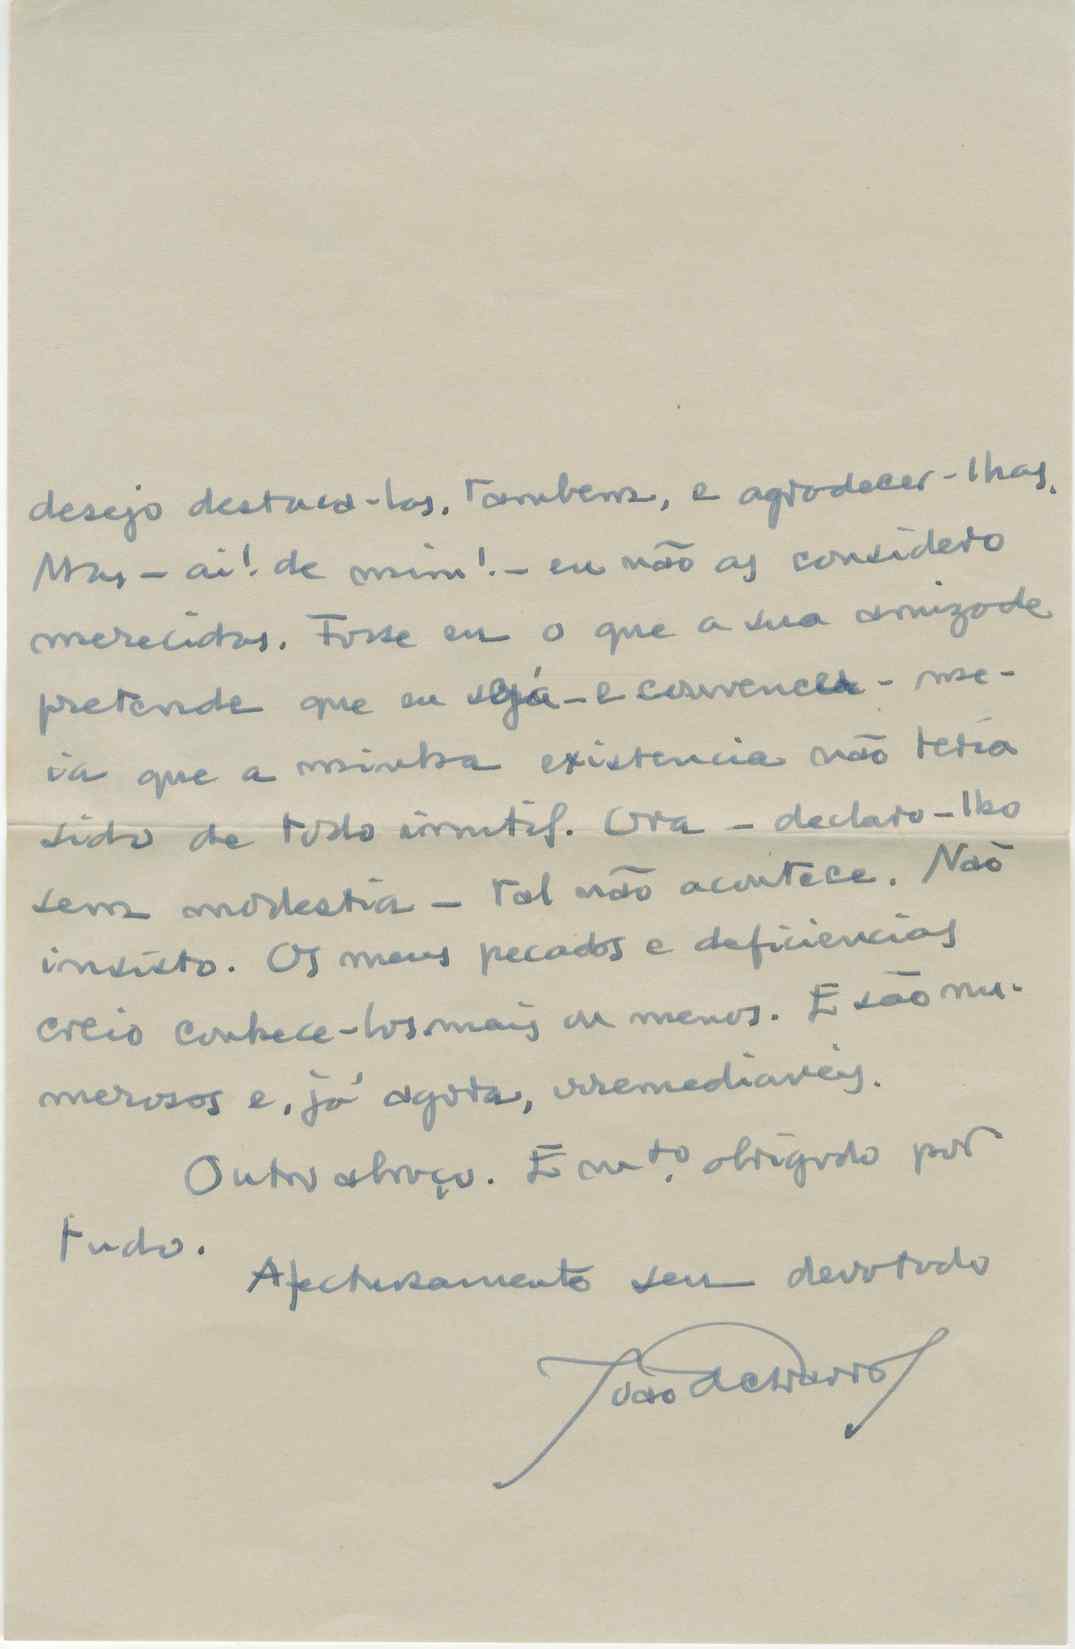 desejo destaca-las, tambem, e agradecer-lhas.
Mas – ai! de mim! – eu não as considero
merecidas. Fosse eu o que a sua amizade
pretende que eu seja – e convencer-me-
ia que a minha existencia não teria
sido de todo inutil. Ora – declaro-lho
sem modestia – tal não acontece. Não
insisto. Os meus pecados e deficiencias
creio conhece-los mais ou menos. E são nu-
merosos e, já agora, irremediaveis.
Outro abraço. E mto. obrigado por
tudo.
Afectuosamente seu devotado
João de Barros